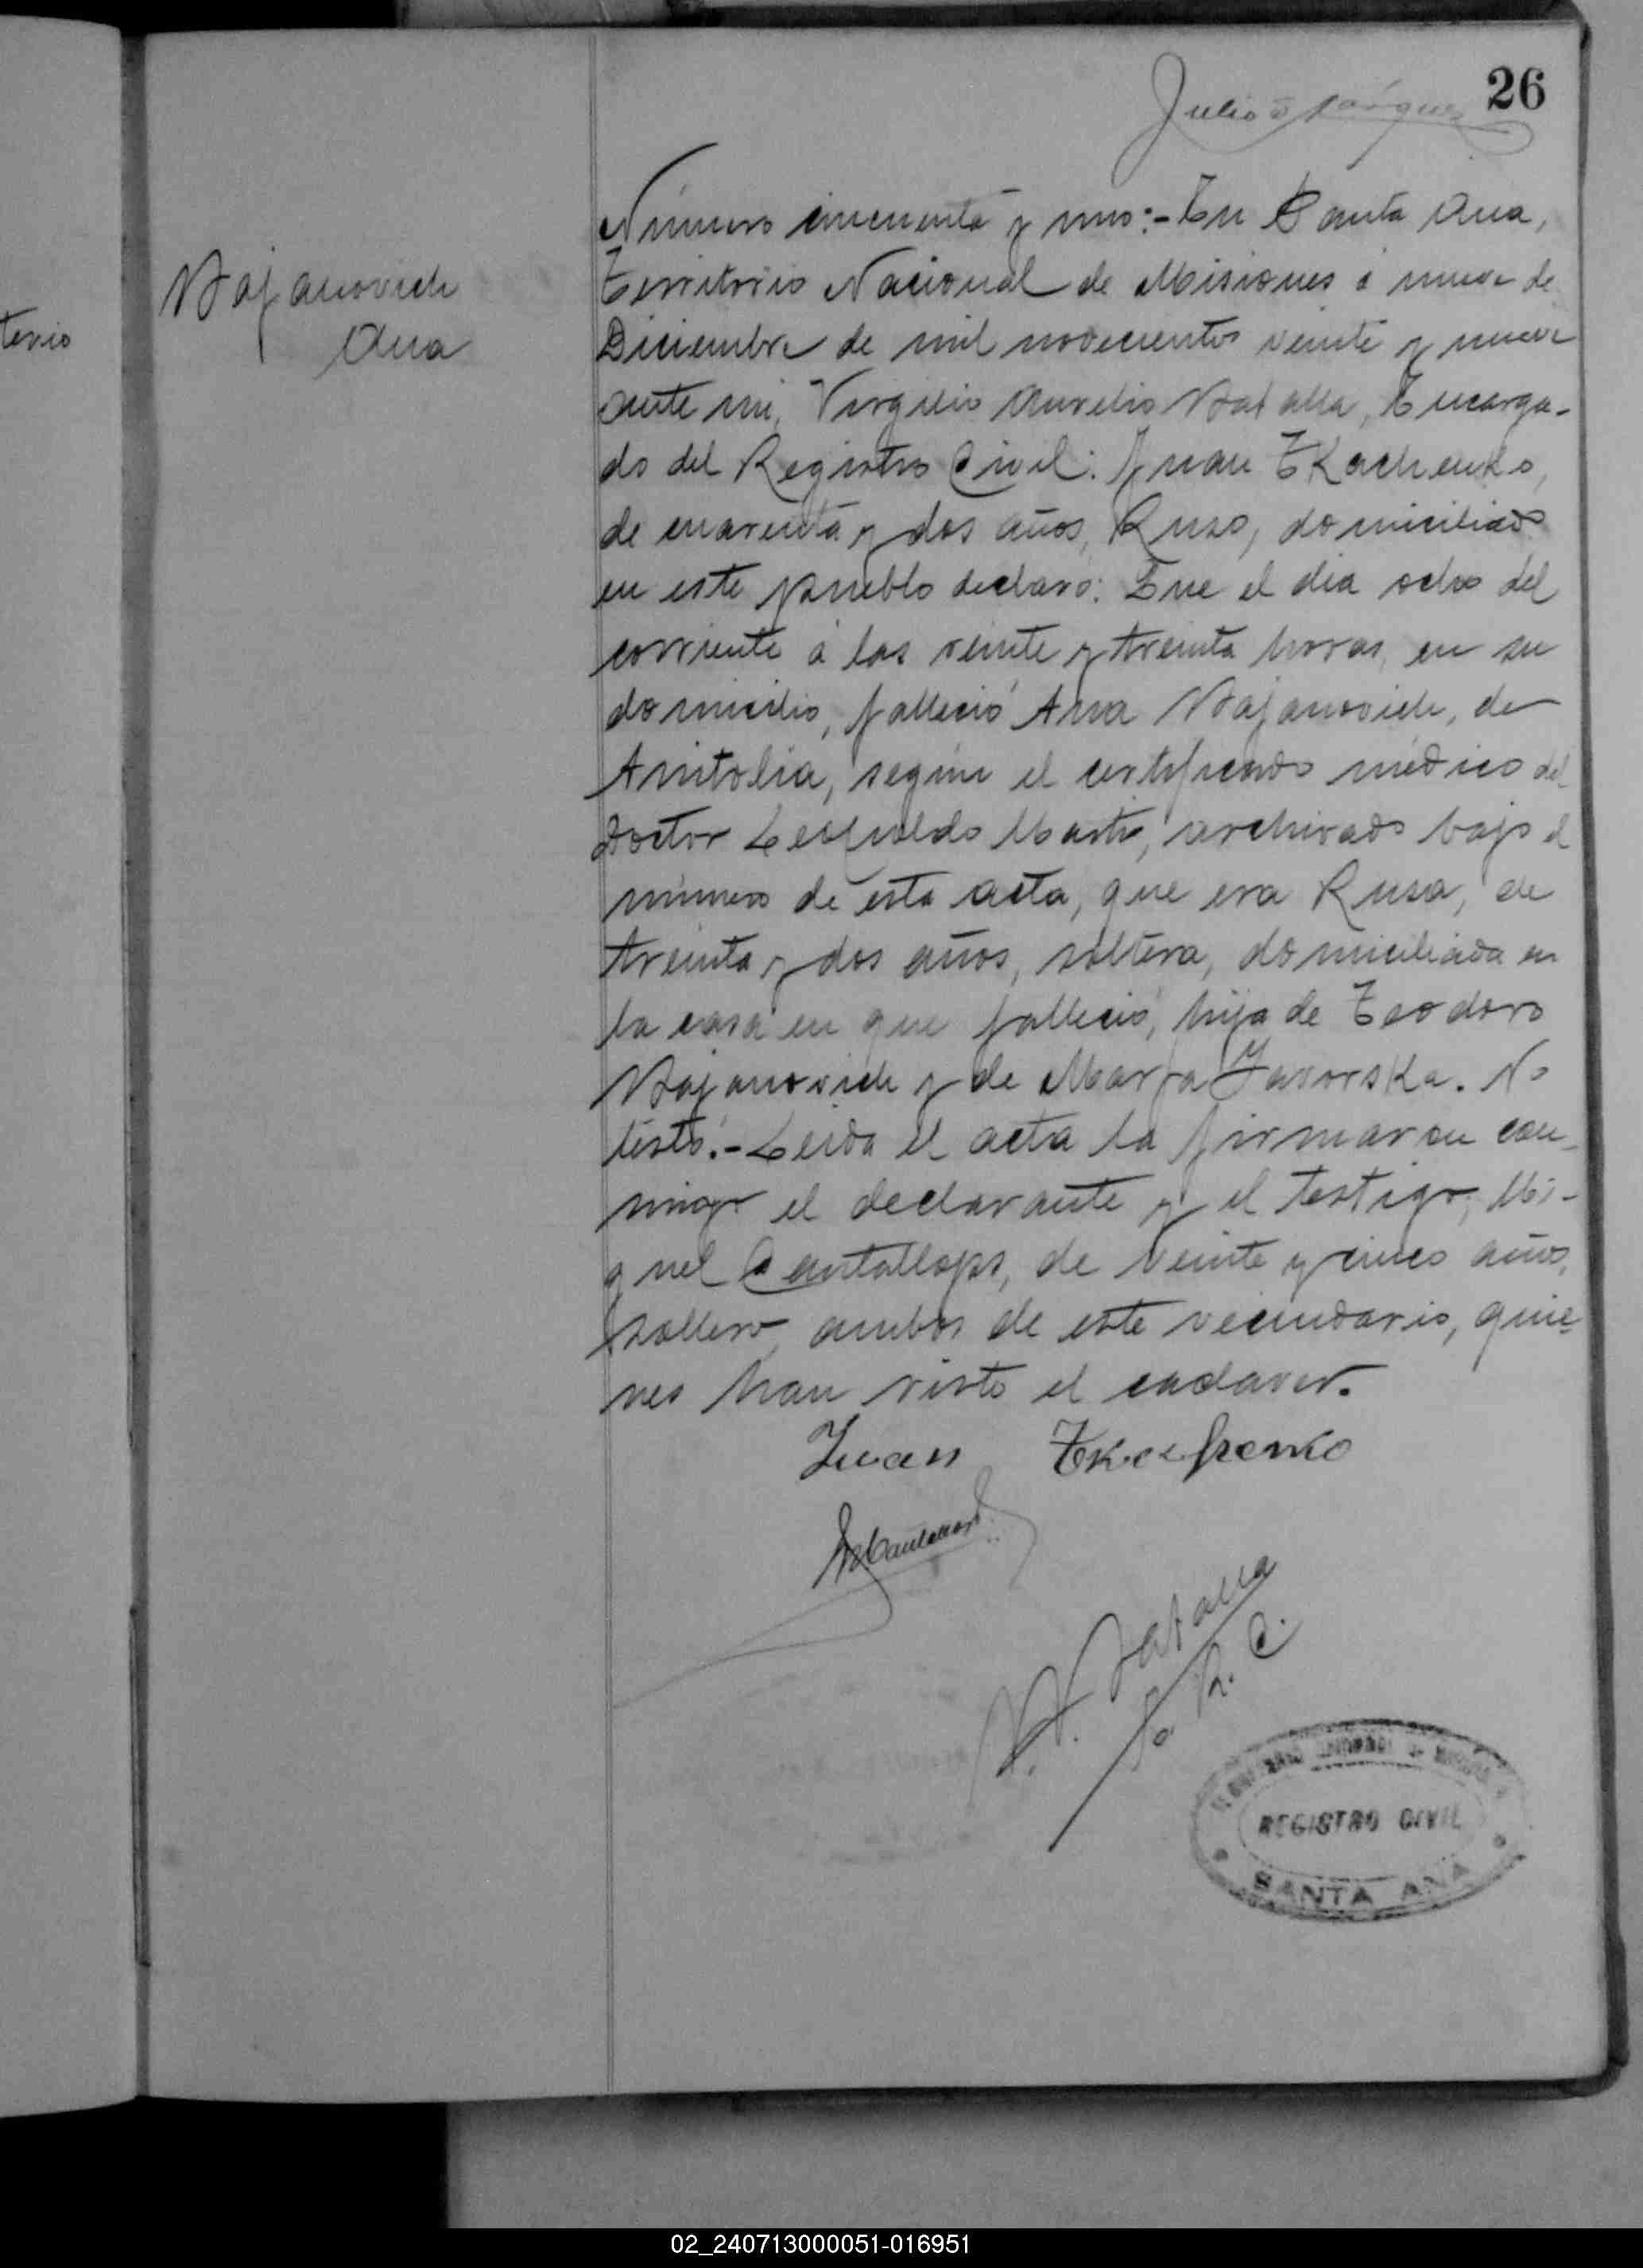 26
Julio
Bajanovich
Ana
terio
Número cincuenta y uno:- En Santa Ana,
Territorio Nacional de Misiones á nueve de
Diciembre de mil novecientos veinte y nueve
ante mi, Virgilio Aurelio Batalla, Encarga-
do del Registro Civil: Juan Tkachenko,
de cuarenta y dos años, Ruso, domiciliado
en este pueblo declaró: Que el dia ocho del
corriente á las veinte y treinta horas, en su
domicilio, falleció Ana Bajanovich, de
Amitolia, según el certificado médico del
doctor Leopoldo Masto, archivado bajo el
número de esta acta, que era Rusa, de
treinta y dos años, soltera, domiciliada en
la casa en que falleció, hija de Teodoro
Bajanovich y de Marfa Javorska. No
testó.- Leida el acta la firmaron con-
migo el declarante y el testigo, Mi-
guel Cantallops, de veinte y cinco años,
soltero, ambos de este vecindario, quie-
nes han visto el cadaver.
Juan Tkachenko
V. A. Batalla
R. C.
REGISTRO CIVIL
SANTA ANA
02_240713000051-016951